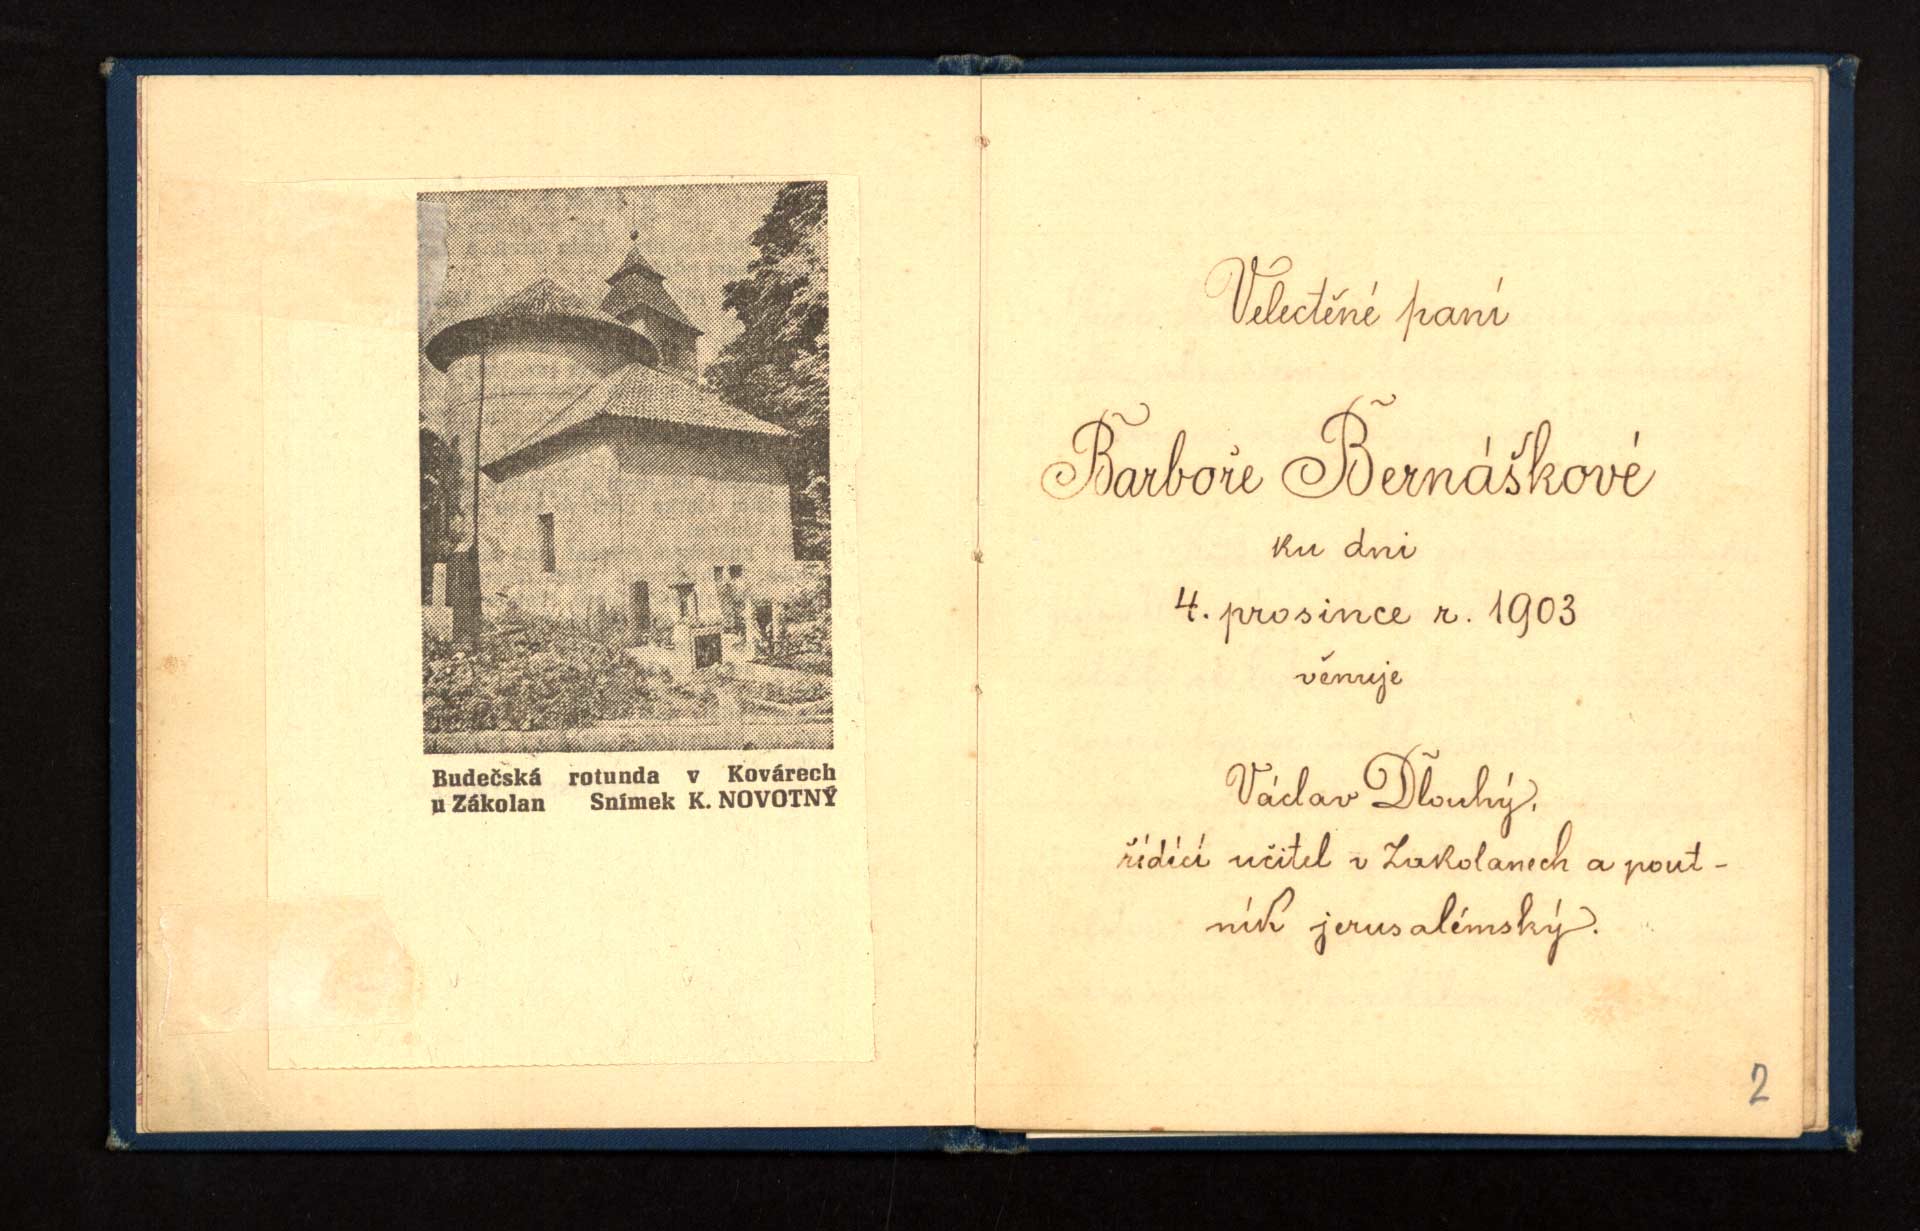 Budečská rotunda v Kovárech
u Zákolan Snímek K. NOVOTNÝ
Velectěné paní
Barboře Bernáškové
ku dni
4. prosince r. 1903
věnuje
Václav Dlouhý,
řídící učitel v Zakolanech a pout-
ník jerusalémský.
2